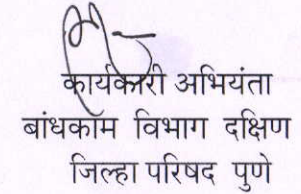 कार्यकारी अभियंता
बांधकाम विभाग दक्षिण
जिल्हा परिषद पुणे